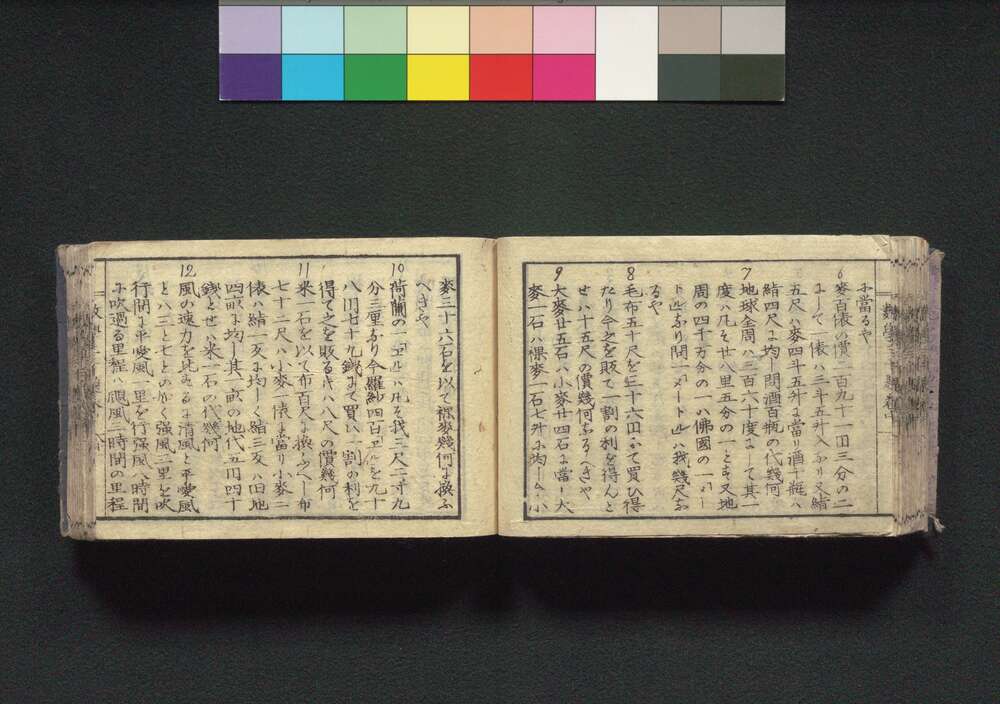 に當るや
6 麥百俵の價二百九十一円三分の二
にして一俵ハ三斗五升入なり又絹
五尺ハ麥四斗五升に當り酒十瓶ハ
絹四尺に均し問酒百瓶の代幾何
7 地球全周ハ三百六十度にして其一
度ハ凡そ廿八里五分の一とす又地
周の四千万分の一ハ佛國の一「メー
トル」なり問一「メートル」ハ我幾尺な
るや
8 毛布五十尺を三十六円にて買ひ得
たり今之を販て一割の利を得んと
せハ十五尺の價幾何なるべきや
9 大麥廿五石ハ小麥廿四石に當り大
麥一石ハ裸麥一石七升に均しム小
麥三十六石を以て裸麥幾何に換ふ
へきや
10 荷蘭の一「エル」ハ凡そ我三尺二寸九
分三厘なり今羅紗四百「エル」を九十
八円七十九錢にて買い一割の利を
得て之を販るときハ八尺の價幾何
11 米一石を以て布百尺に換ふべし布
七十二尺ハ小麥一俵に當り小麥二
俵ハ絹一丈に均しく絹三丈ハ田地
四畝に均し其一畝の地代五円四十
錢とせハ米一石の代幾何
12 風の速力を比するに清風と平愛風
とハ三と七との如く強風三里を吹
行間に平愛風一里を行強風八時間
に吹過る里程ハ颶風二時間の里程